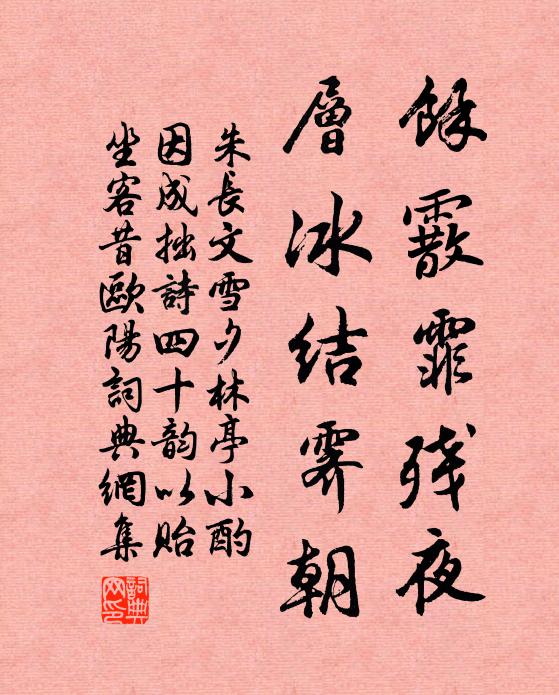 餘霰霏残夜
層冰結霽朝
朱長文雪夕林亭小酌
因成拙詩四十韵以貽
坐客昔歐陽詞典網集